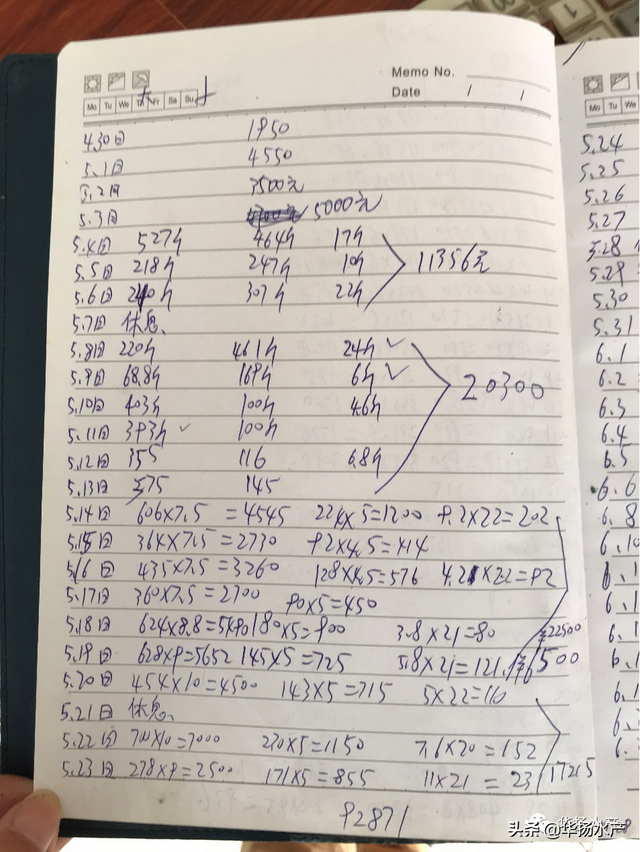 Memo No.
Mo Tu We Th Fr Sa Su
Date / /
4.30日 1950
5.1日 4550
5.2日 3500元
5.3日 5000元
5.4日 527斤 464斤 17斤
5.5日 218斤 247斤 10斤 11356元
5.6日 240斤 307斤 22斤
5.7日 休息、
5.8日 220斤 461斤 24斤 ✓
5.9日 68.8斤 169斤 6斤 ✓
5.10日 403斤 100斤 4.6斤 20300
5.11日 393斤 ✓ 100斤
5.12日 355 116 6.8斤
5.13日 375 145
5.14日 606×7.5=4545 224×5=1200 9.2×22=202
5.15日 364×7.5=2730 92×4.5=414
5.16日 435×7.5=3260 128×4.5=576 4.2×22=92
5.17日 360×7.5=2700 90×5=450
5.18日 624×8.8=5490 180×5=900 3.8×21=80 22500
5.19日 628×9=5652 145×5=725 5.8×21=121. 6500
5.20日 454×10=4500 143×5=715 5×22=110
5.21日 休息、
5.22日 700×10=7000 230×5=1150 7.6×20=152
5.23日 278×9=2500 171×5=855 11×21=231 17215
92871
5.24
5.25
5.26
5.27
5.28
5.29
5.30
5.31
6.1
6.2
6.3
6.4
6.5
6.6
6.8
6.10
华扬水产
头条 @华扬水产